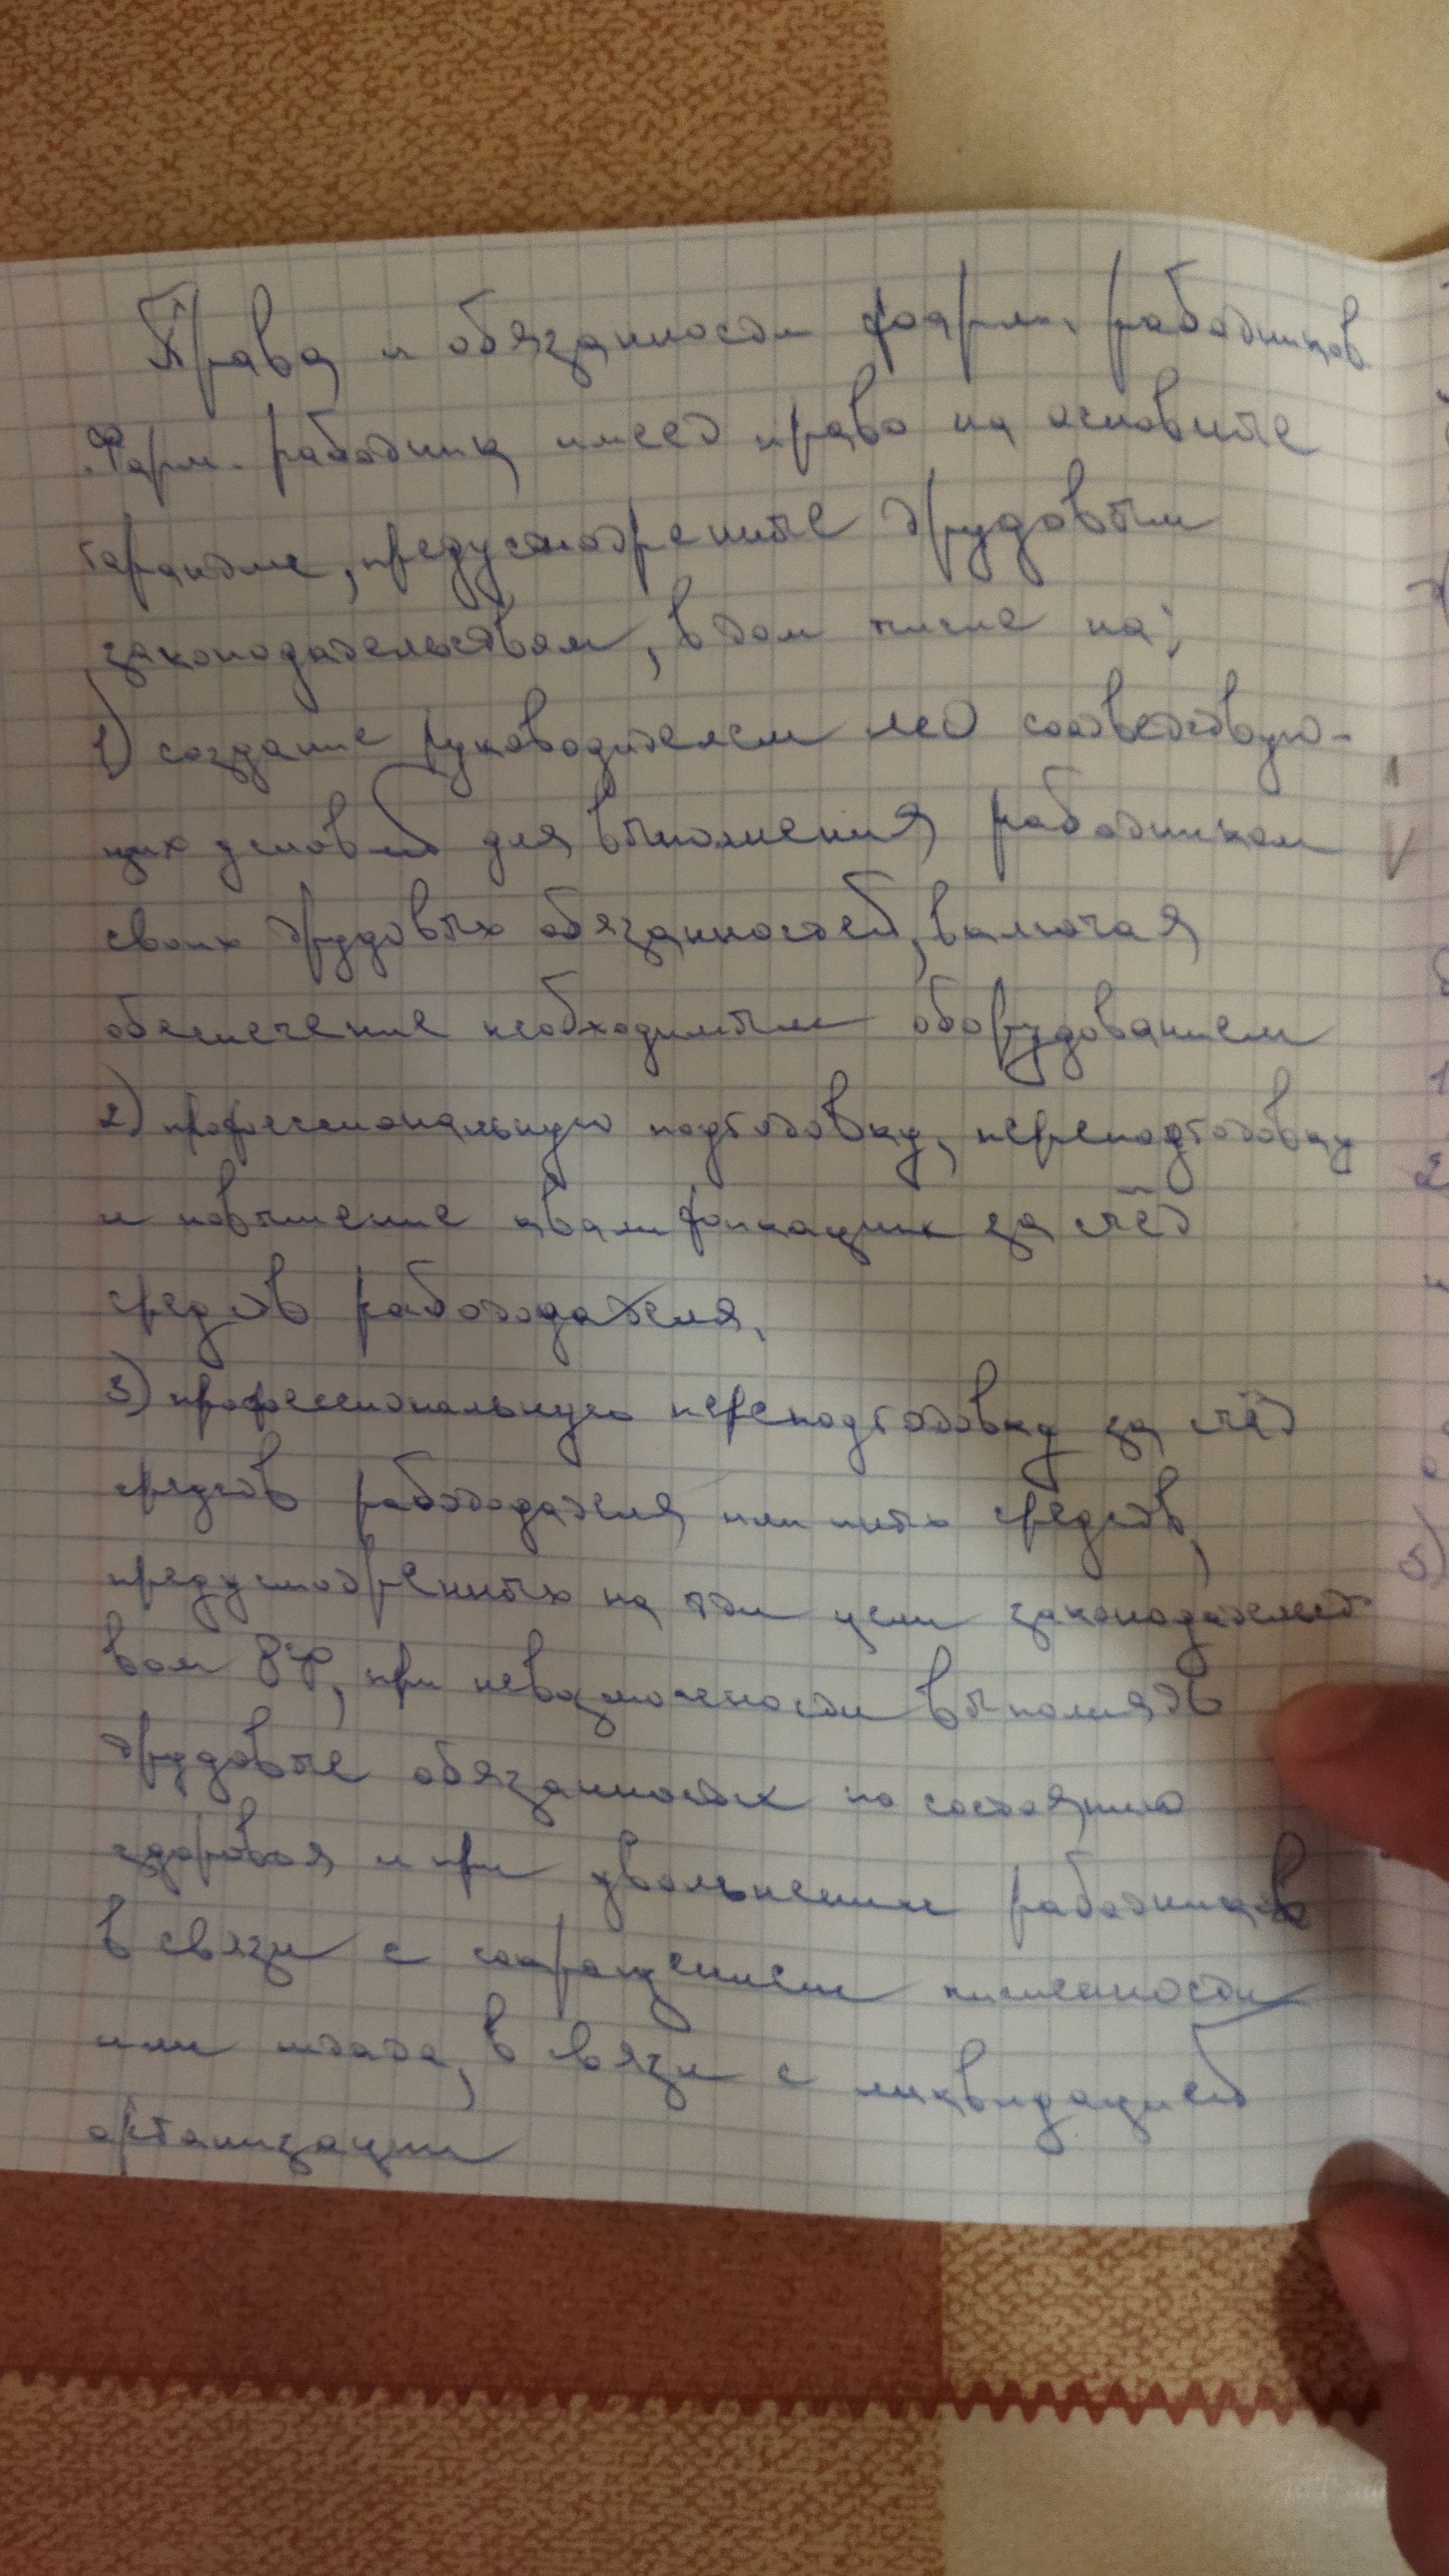 Права и обязанности фарм. работников
Фарм. работник имеет право на основные
гарантии, предусмотренные трудовым
законодательством, в том числе на:
1) создание руководителем мед соответствую-
щих условий для выполнения работником
своих трудовых обязанностей, включая
обеспечение необходимым оборудованием
2) профессиональную подготовку, переподготовку
и повышение квалификации за счёт
средств работодателя.
3) профессиональную переподготовку за счёт
средств работодателя или иных средств,
предусмотренных на эти цели законодательст-
вом РФ, при невозможности выполнять
трудовые обязанности по состоянию
здоровья и при увольнении работников
в связи с сокращением численности
или штата, в связи с ликвидацией
организации